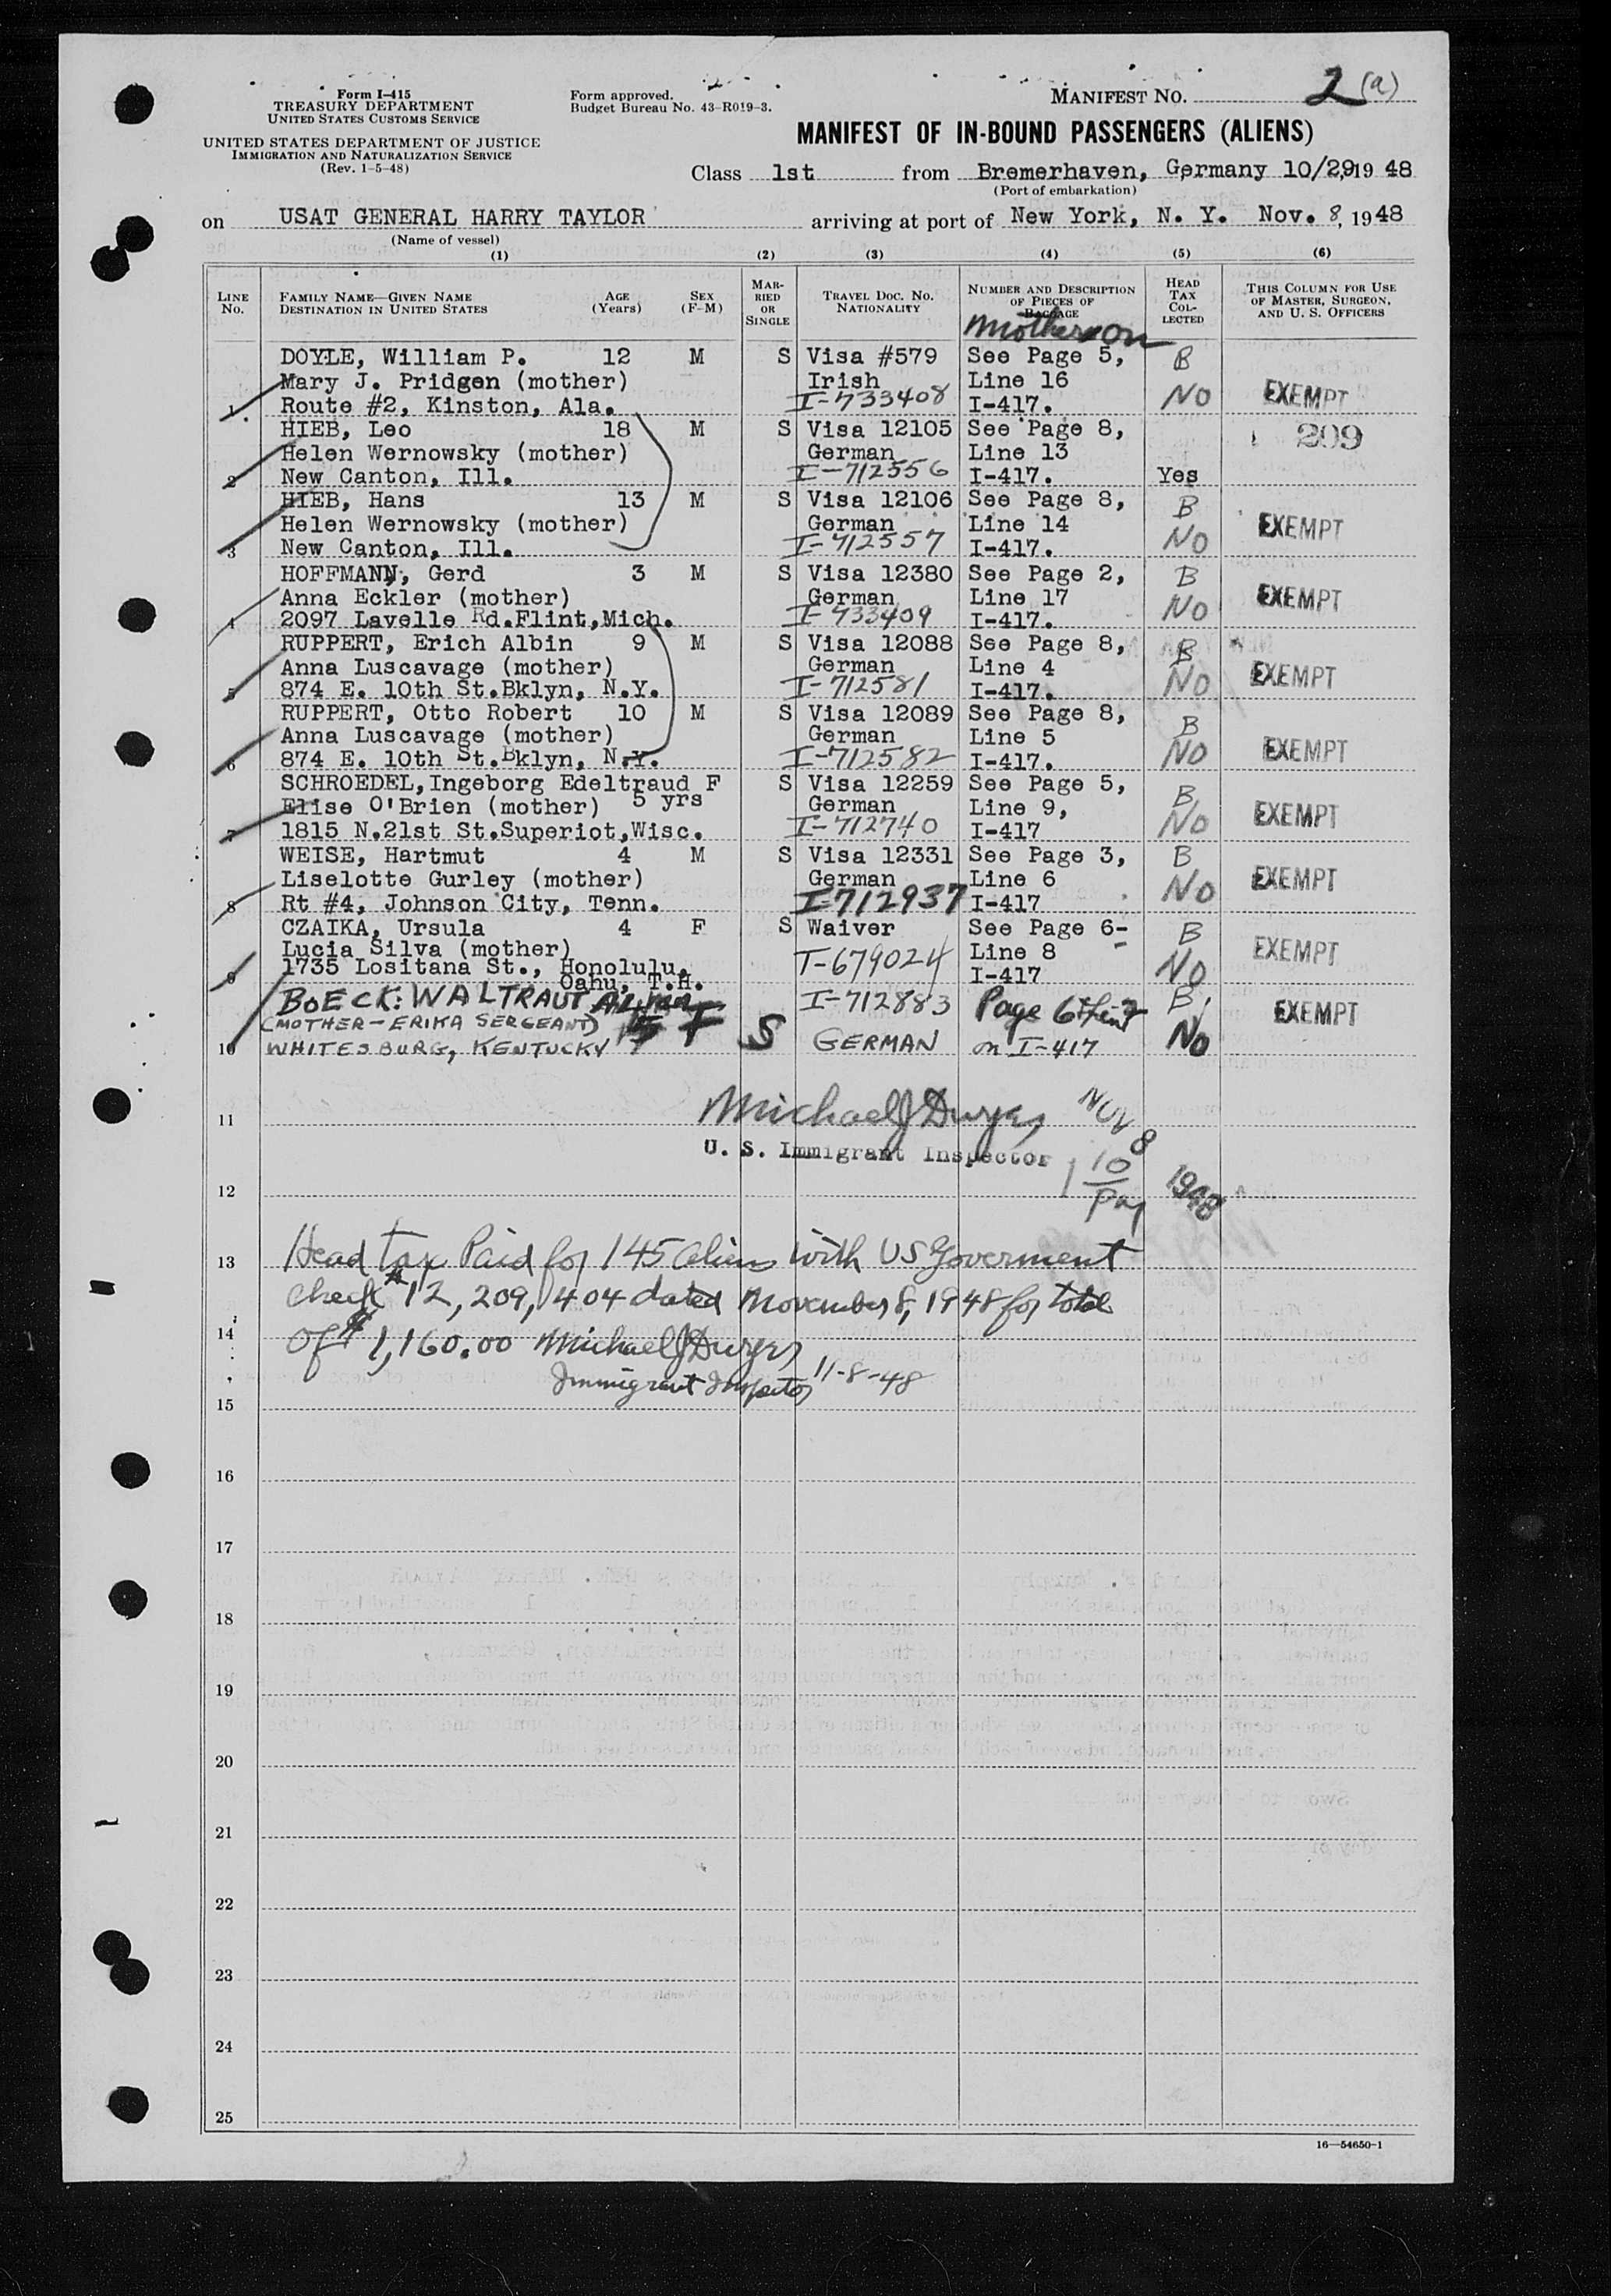 Form I-415
TREASURY DEPARTMENT
UNITED STATES CUSTOMS SERVICE
UNITED STATES DEPARTMENT OF JUSTICE
IMMIGRATION AND NATURALIZATION SERVICE
(Rev. 1-5-48)
Form approved.
Budget Bureau No. 43-R019-3.
MANIFEST NO. 2 (a)
MANIFEST OF IN-BOUND PASSENGERS (ALIENS)
Class 1st from Bremerhaven, Germany 10/29, 19 48
(Port of embarkation)
on USAT GENERAL HARRY TAYLOR arriving at port of New York, N. Y. Nov. 8, 1948
(Name of vessel)
(1) (2) (3) (4) (5) (6)
LINE No. FAMILY NAME—GIVEN NAME DESTINATION IN UNITED STATES AGE (Years) SEX (F-M) MARRIED OR SINGLE TRAVEL DOC. NO. NATIONALITY NUMBER AND DESCRIPTION OF PIECES OF BAGGAGE HEAD TAX COLLECTED THIS COLUMN FOR USE OF MASTER, SURGEON, AND U. S. OFFICERS
Mother on
DOYLE, William P. 12 M S Visa #579 See Page 5, B
Mary J. Pridgen (mother) Irish Line 16
1 Route #2, Kinston, Ala. I-733408 I-417. NO EXEMPT
HIEB, Leo 18 M S Visa 12105 See Page 8, 209
Helen Wernowsky (mother) German Line 13
2 New Canton, Ill. I-712556 I-417. Yes
HIEB, Hans 13 M S Visa 12106 See Page 8, B
Helen Wernowsky (mother) German Line 14 EXEMPT
3 New Canton, Ill. I-712557 I-417. NO
HOFFMANN, Gerd 3 M S Visa 12380 See Page 2, B
Anna Eckler (mother) German Line 17 EXEMPT
4 2097 Lavelle Rd.Flint,Mich. I-733409 I-417. NO
RUPPERT, Erich Albin 9 M S Visa 12088 See Page 8, B
Anna Luscavage (mother) German Line 4 EXEMPT
5 874 E. 10th St.Bklyn, N.Y. I-712581 I-417. NO
RUPPERT, Otto Robert 10 M S Visa 12089 See Page 8, B
Anna Luscavage (mother) German Line 5
6 874 E. 10th St.Bklyn, N.Y. I-712582 I-417. NO EXEMPT
SCHROEDEL, Ingeborg Edeltraud F S Visa 12259 See Page 5, B
Elise O'Brien (mother) 5 yrs German Line 9, EXEMPT
7 1815 N.21st St.Superiot,Wisc. I-712740 I-417 NO
WEISE, Hartmut 4 M S Visa 12331 See Page 3, B
Liselotte Gurley (mother) German Line 6 EXEMPT
8 Rt #4, Johnson City, Tenn. I-712937 I-417 NO
CZAIKA, Ursula 4 F S Waiver See Page 6- B
Lucia Silva (mother) T-679024 Line 8 EXEMPT
9 1735 Lositana St., Honolulu, I-417 NO
Oahu, T.H.
BOECK: WALTRAUT I-712883 Page 6 B
(MOTHER - ERIKA SERGEANT) F S EXEMPT
10 WHITESBURG, KENTUCKY GERMAN on I-417 No
11 Michael J Dwyer NOV 8 1948
U. S. Immigrant Inspector
12
10
Pay
13 Head tax Paid for 145 aliens with US Goverment
check # 12,209,404 dated November 8, 1948 for total
14 of $1,160.00 Michael J Dwyer
Immigrant Inspector 11-8-48
15
16
17
18
19
20
21
22
23
24
25
16—54650-1